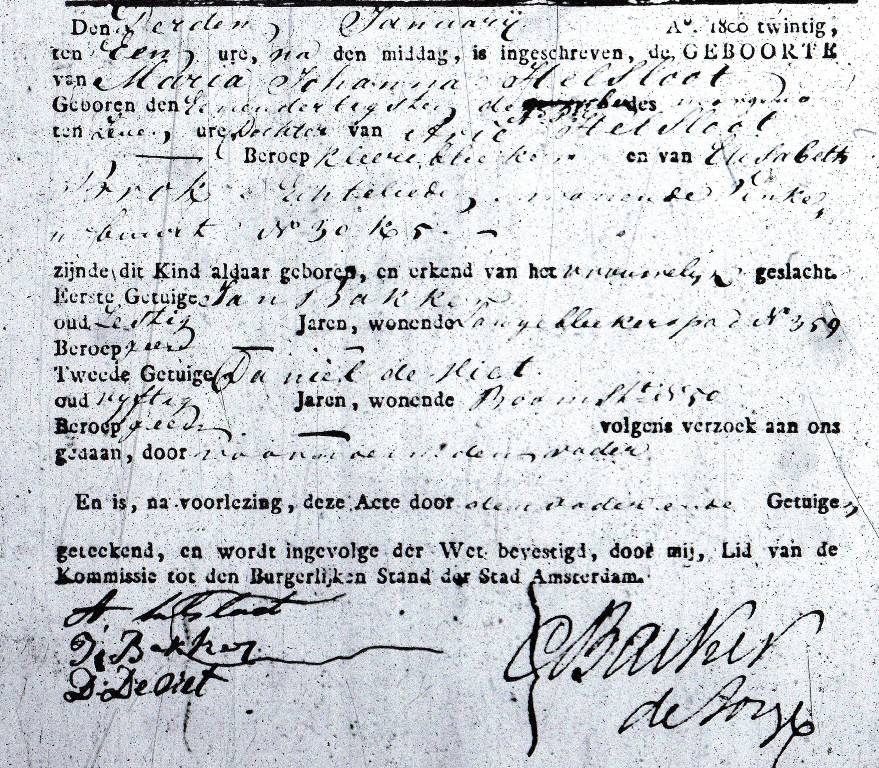 Den Derden Januarij A°. 1800 twintig,
ten Een ure, na den middag, is ingeschreven, de GEBOORTE
van Maria Johanna Helsloot
Geboren den Eenendertigsten dec des morgens
ten Zeven, ure, Dochter van Arie Helsloot
Beroep kleerebleeker en van Elisabeth
Brok Echtelieden, wonende Vinke,
buurt N° 30 K 5.
zijnde dit Kind aldaar geboren, en erkend van het vrouwelyk geslacht.
Eerste Getuige Jan Bakker
oud Zestig Jaren, wonende Lange bleekerspad N° 359
Beroep geen
Tweede Getuige Daniel de Niet
oud vyftig Jaren, wonende Boomstt N° 50
Beroep geen volgens verzoek aan ons
gedaan, door voornoemden vader
En is, na voorlezing, deze Acte door den vader en de Getuigen
geteekend, en wordt ingevolge der Wet bevestigd, door mij, Lid van de
Kommissie tot den Burgerlijken Stand der Stad Amsterdam.
A helsloot
J: Bakker
D: De Niet
Barker
de Jonge